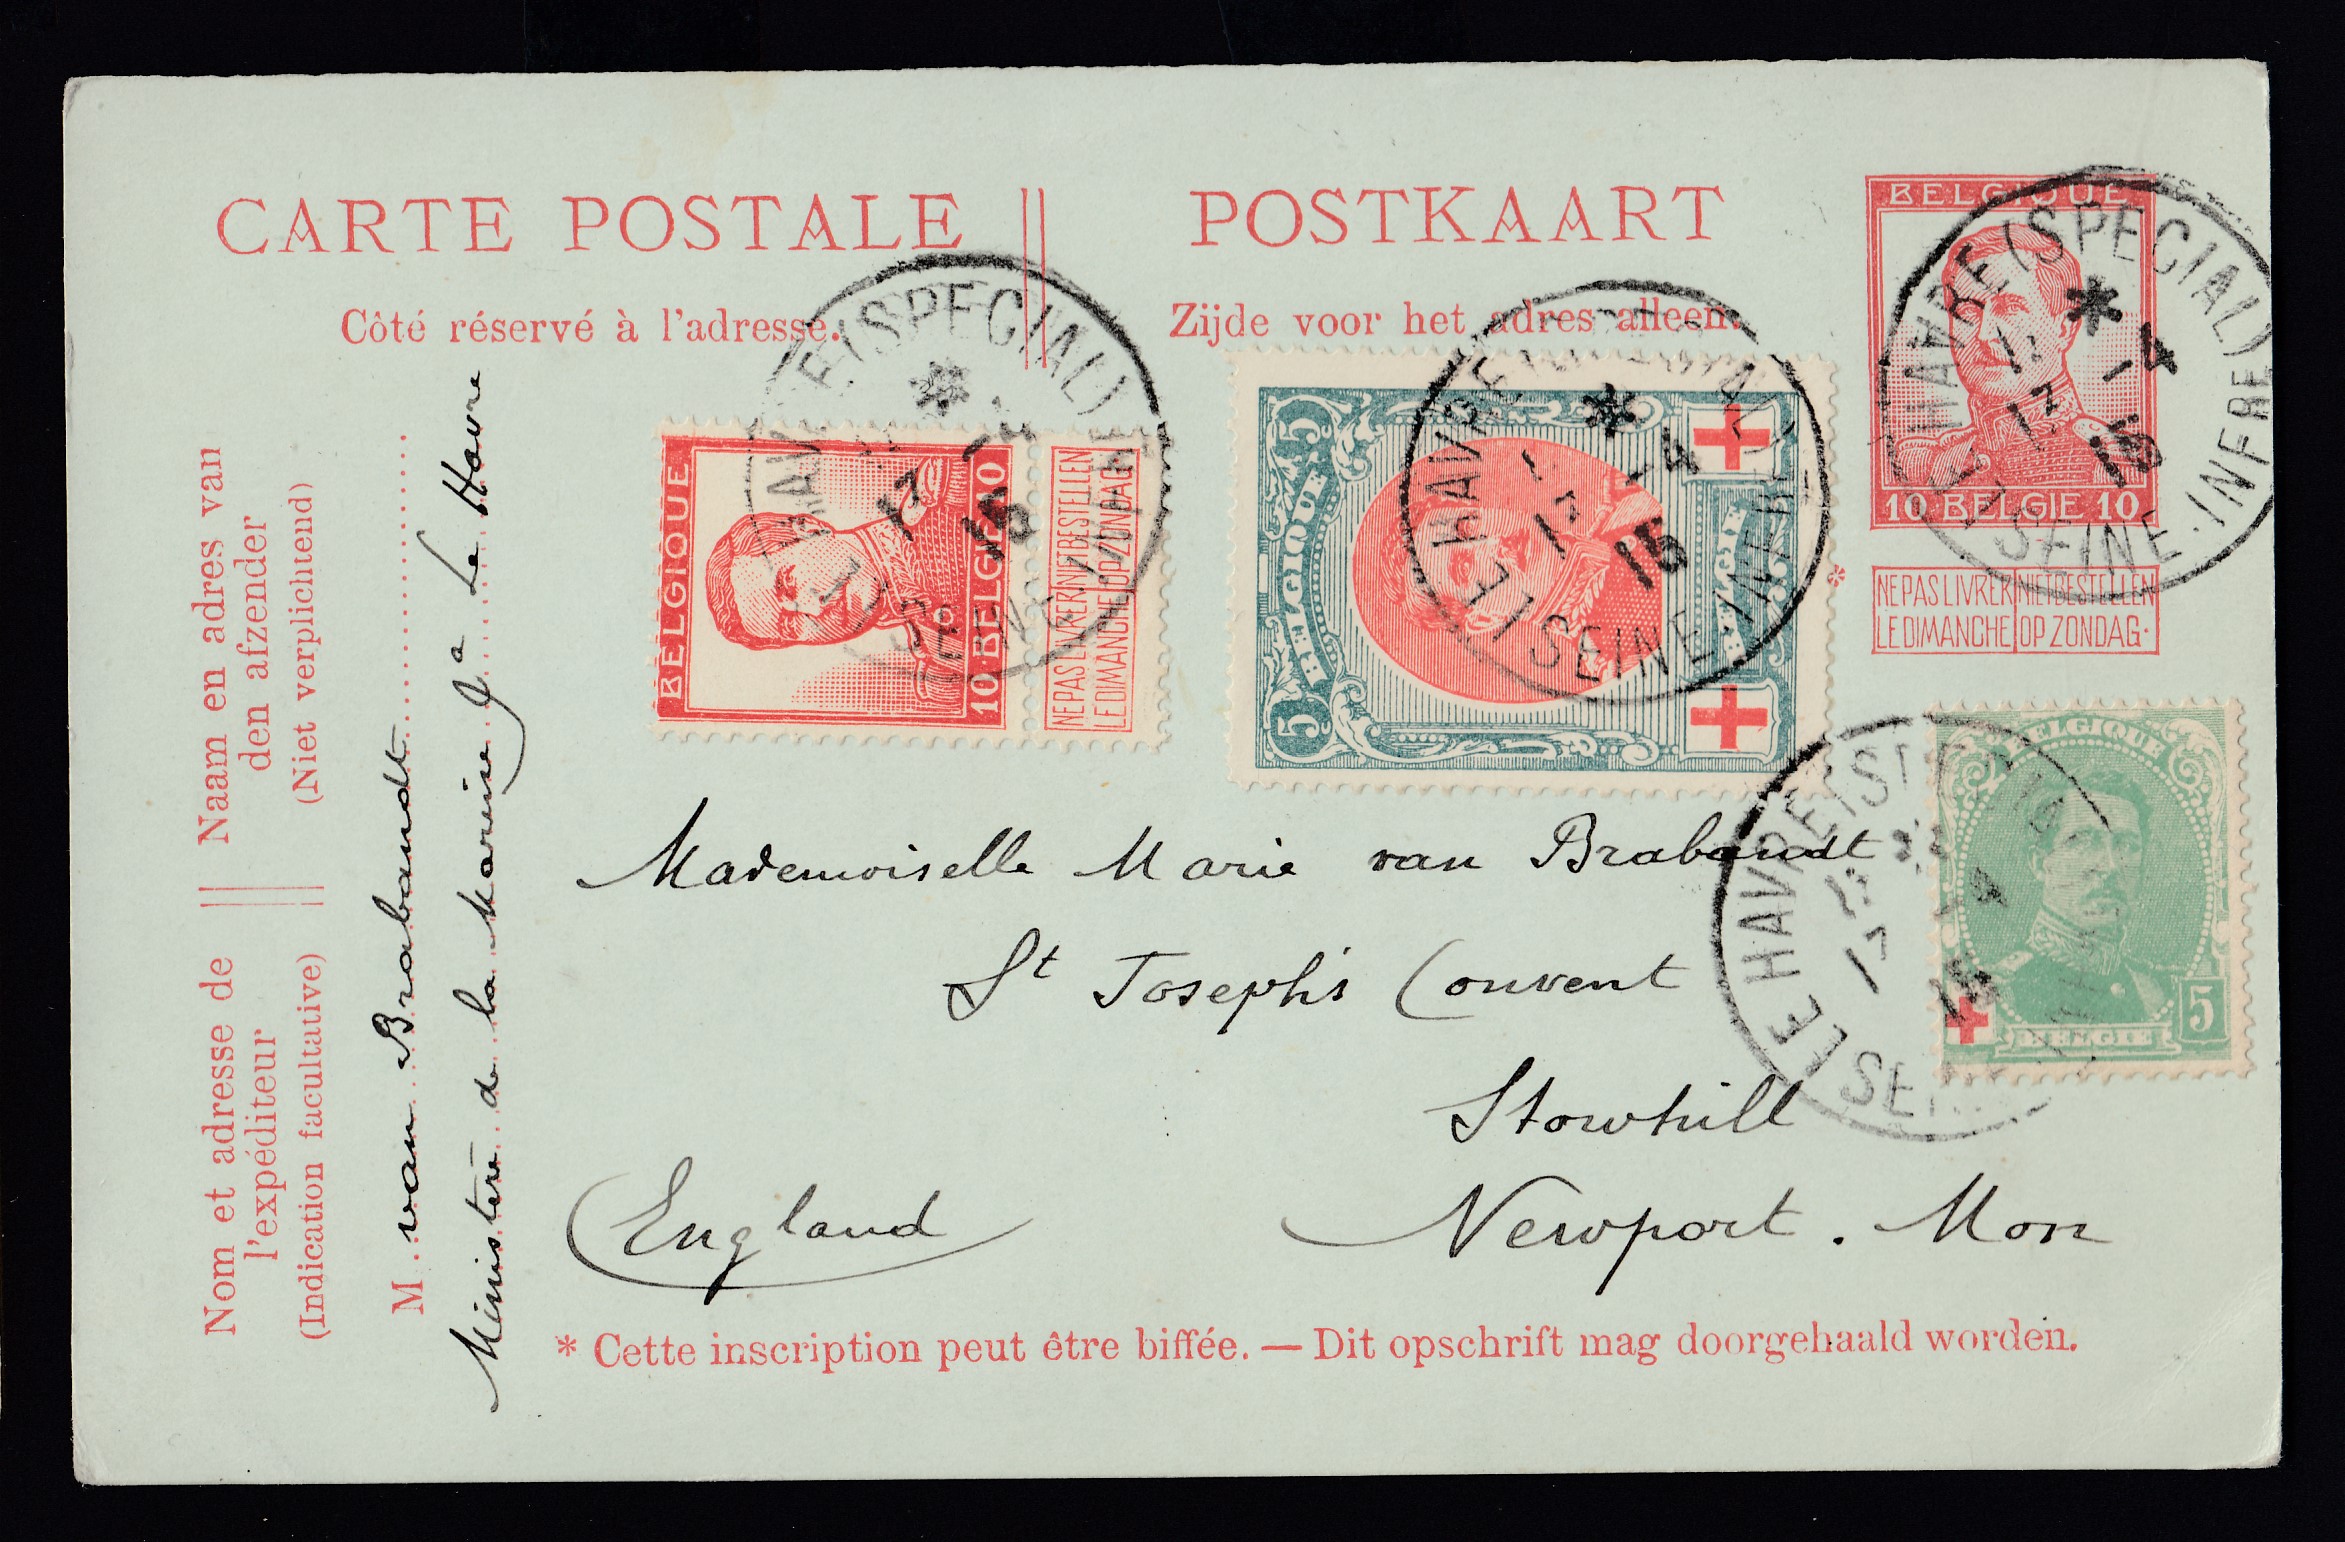 CARTE POSTALE
POSTKAART
Côté réservé à l'adresse.
Zijde voor het adres alleen.
BELGIQUE
10 BELGIE 10
NE PAS LIVRER LE DIMANCHE
NIET BESTELLEN OP ZONDAG.
LE HAVRE (SPECIAL)
SEINE-INFRE
17
-4
15
BELGIQUE
10 BELGIE 10
NE PAS LIVRER LE DIMANCHE
NIET BESTELLEN OP ZONDAG
(SPECIAL)
17
15
5 BELGIQUE 5
BELGIE
LE HAVRE
SEINE INFRE
-4
15
*
BELGIQUE
BELGIE
5
LE HAVRE (S
17
15
Naam en adres van
den afzender
(Niet verplichtend)
Nom et adresse de
l'expéditeur
(Indication facultative)
M. van Brabandt
Ministère de la Marine Ja Le Havre
Mademoiselle Marie van Brabandt
St Joseph's Convent
Stowhill
Newport. Mon
England
* Cette inscription peut être biffée. — Dit opschrift mag doorgehaald worden.